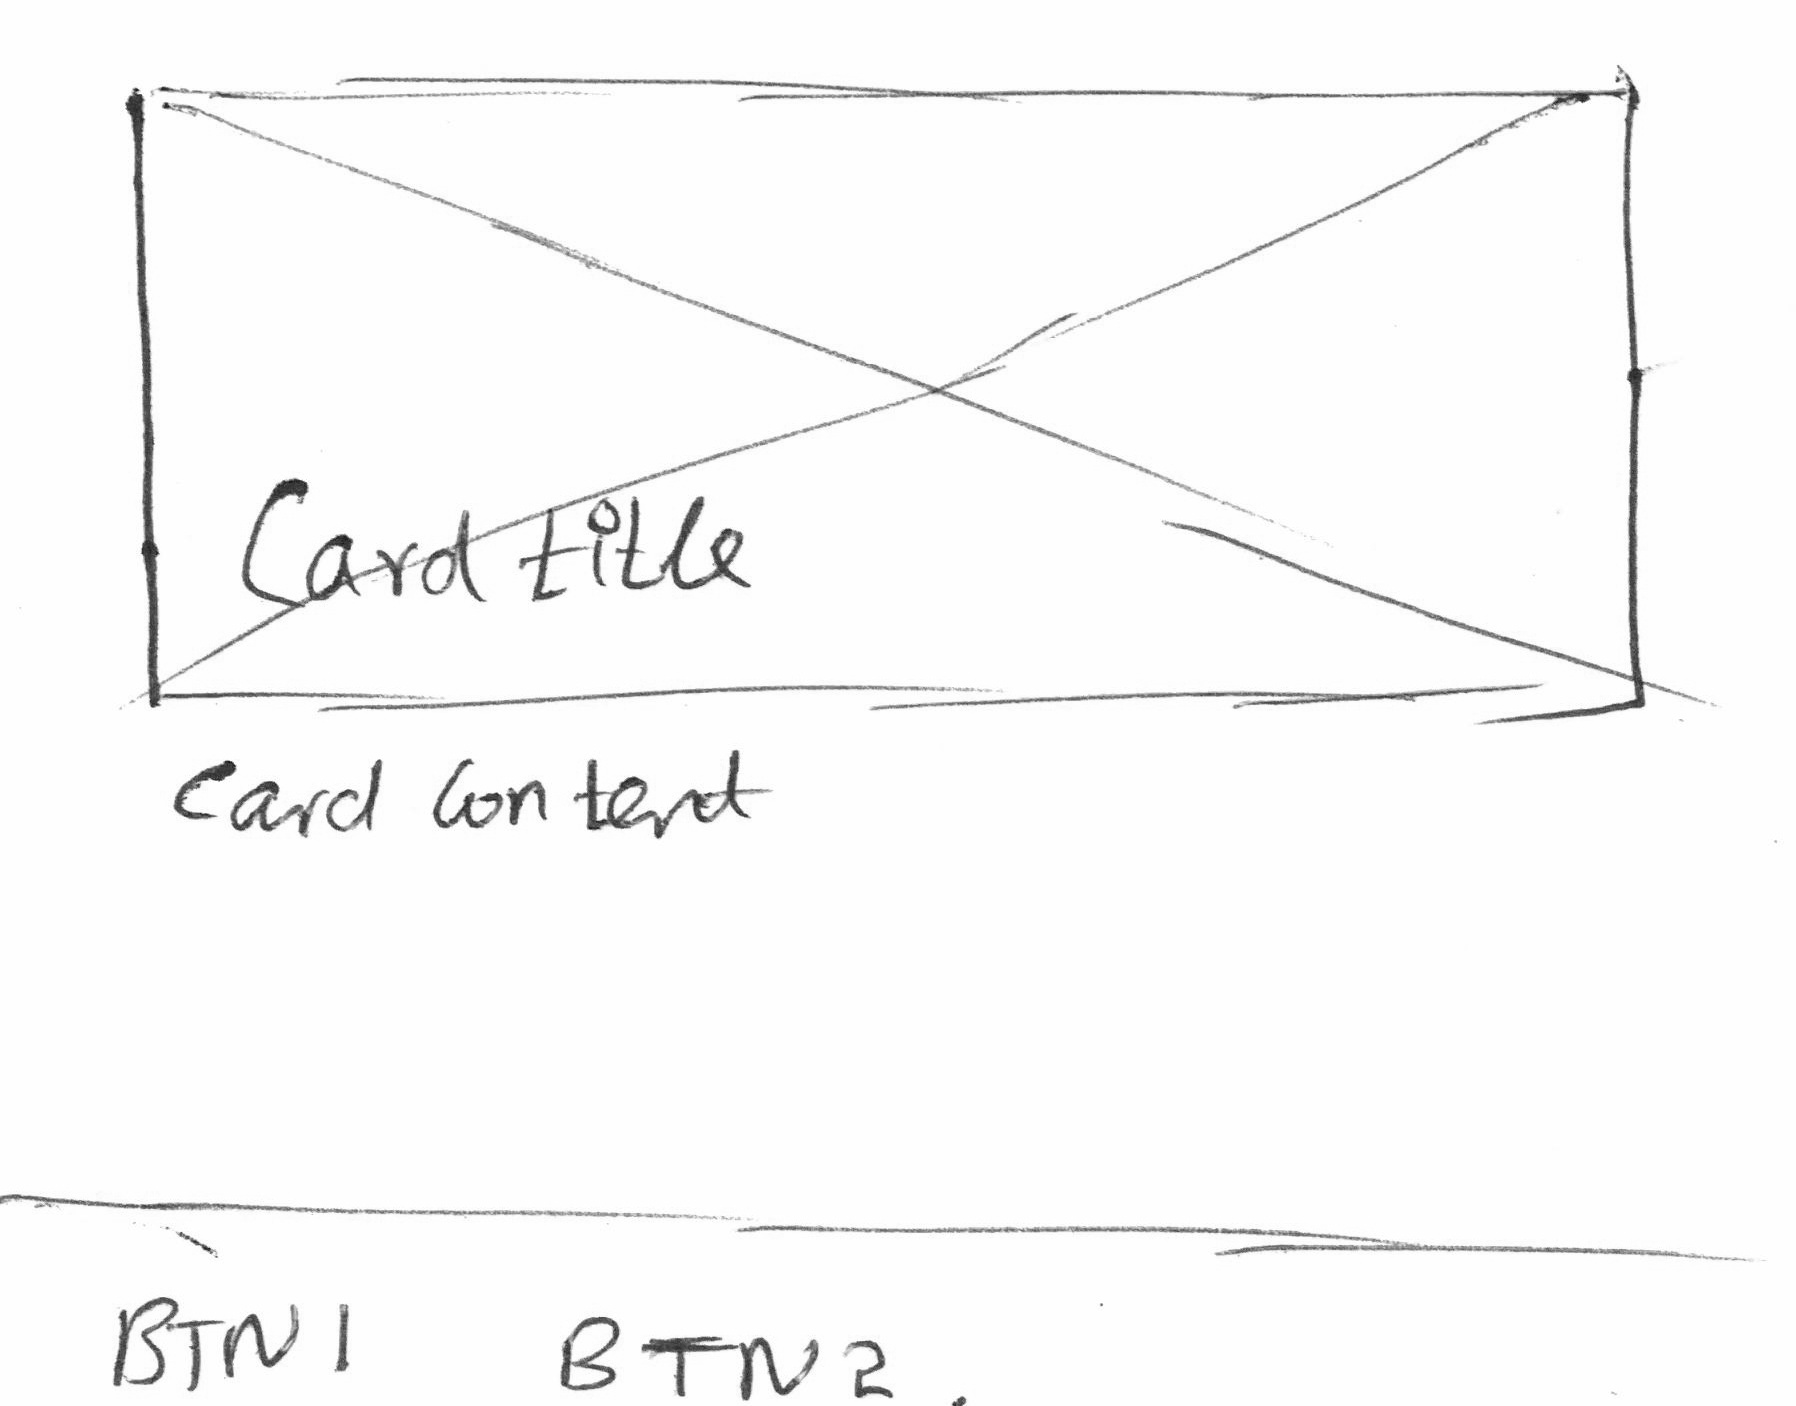 Card title
Card Content
BTN1 BTN2.